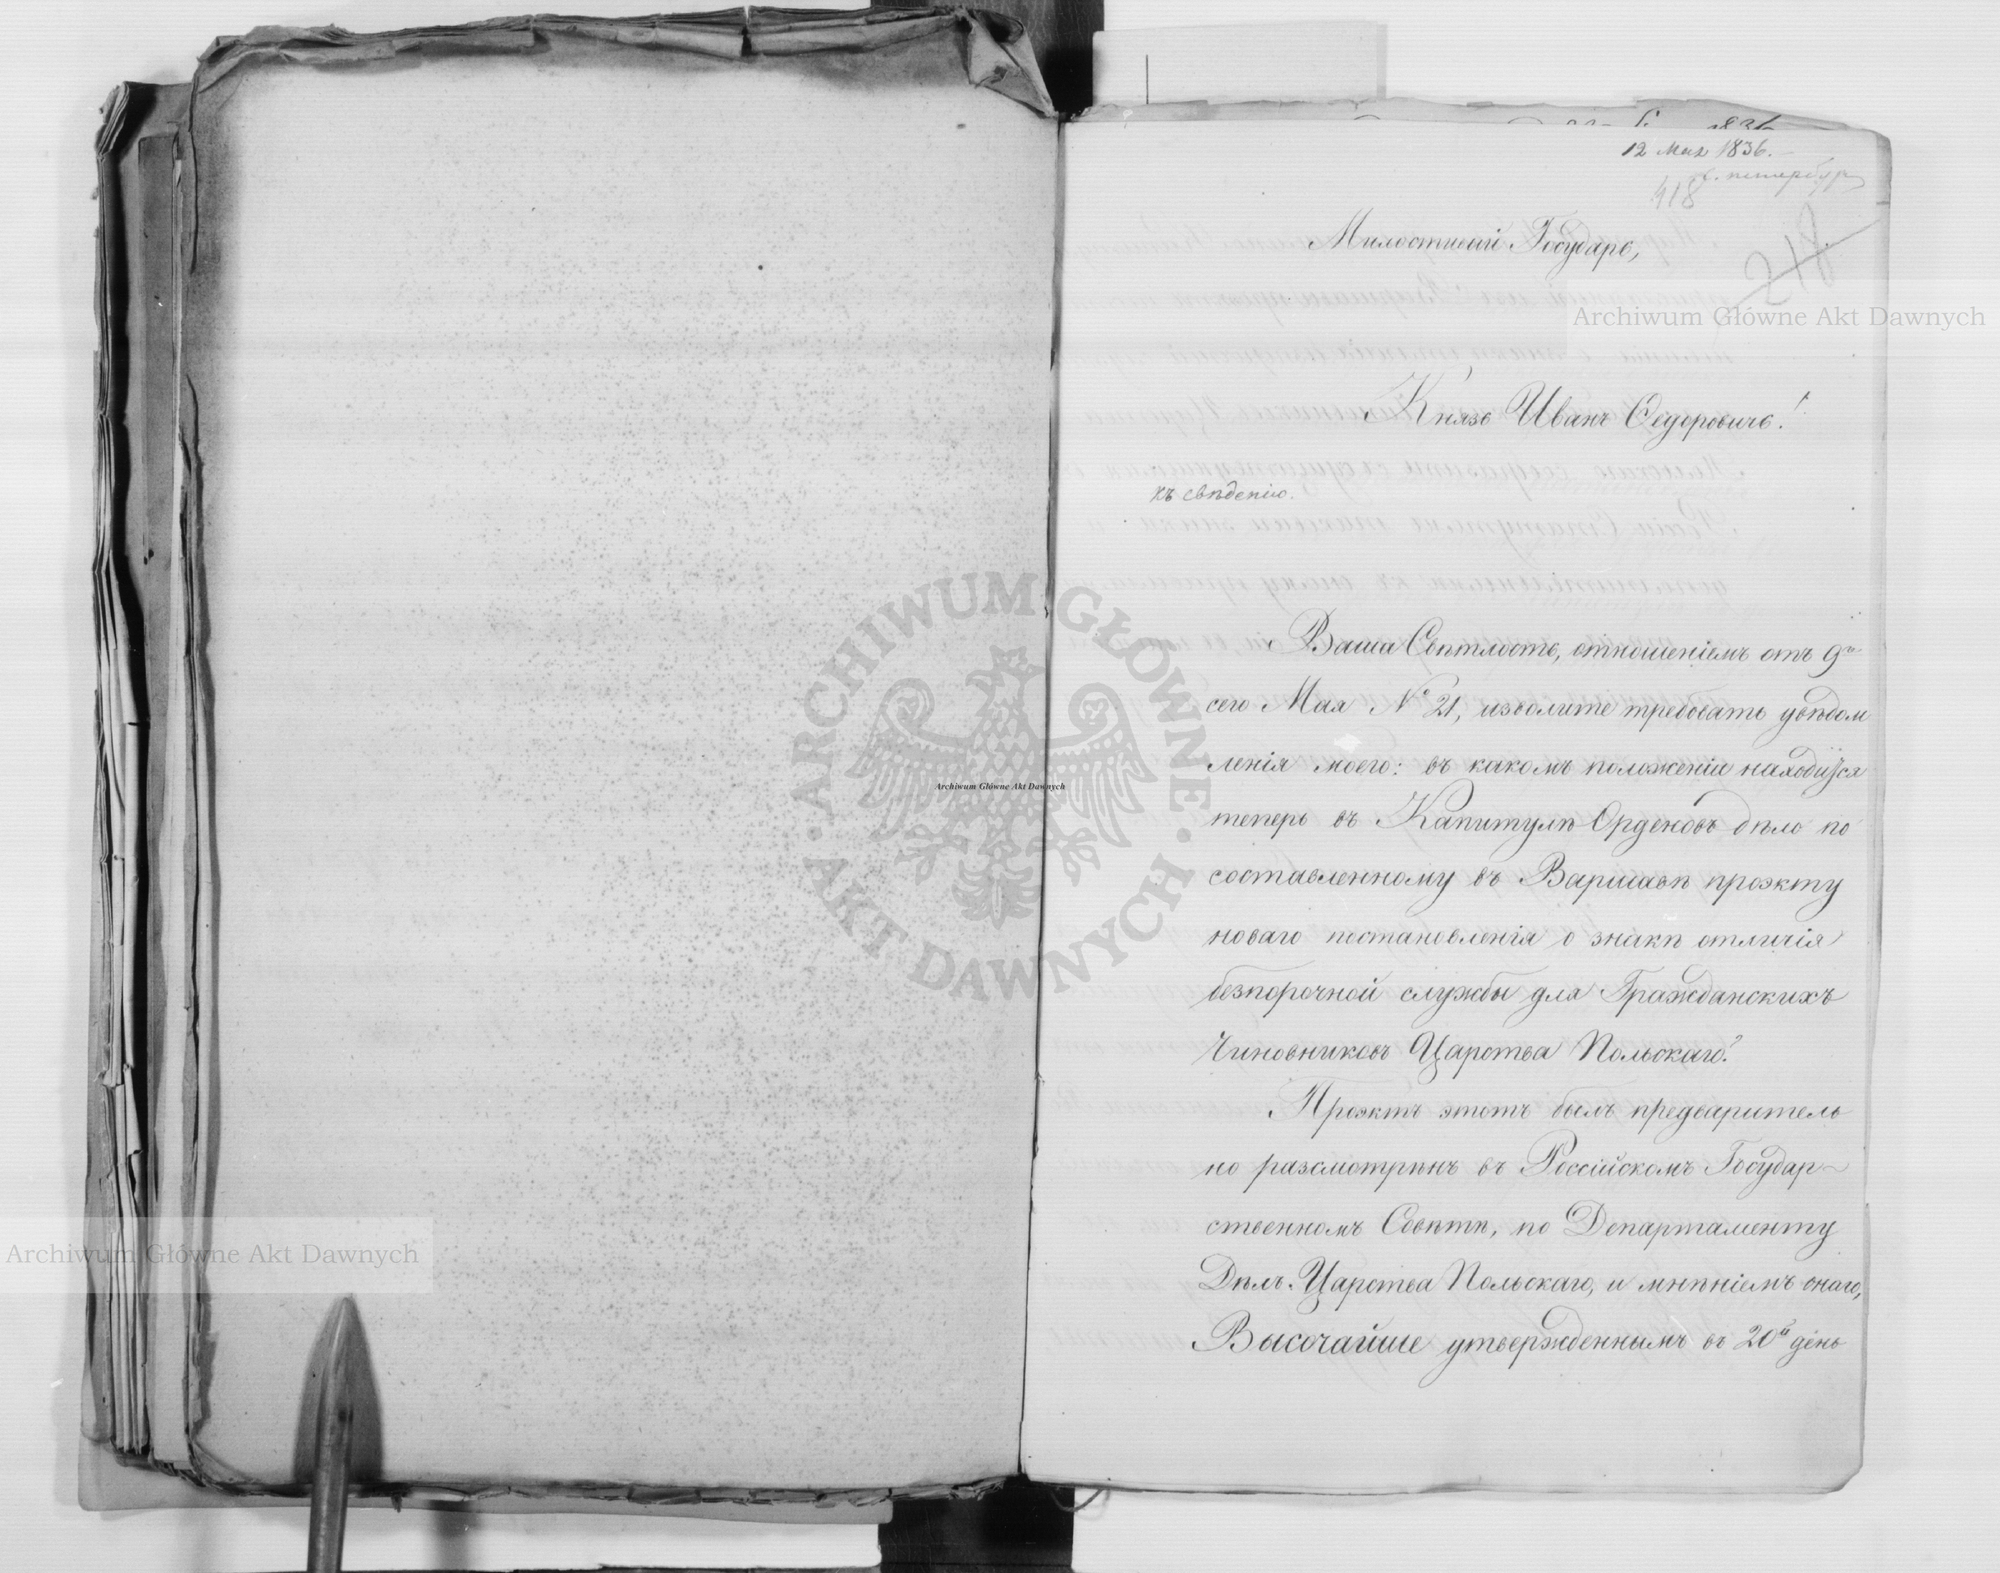 12 Мая 1836.
С. петербур
418
218
Милостивый Государь,
Князь Иванъ Ѳедоровичь!
къ свѣденію.
Ваша Свѣтлость, отношеніемъ отъ 9го
сего Мая № 21, изволите требовать увѣдом
ленія моего: въ какомъ положеніи находится
теперь въ Капитулѣ Орденовъ дѣло по
составленному въ Варшавѣ проэкту
новаго постановленія о знакѣ отличія
безпорочной службы для Гражданскихъ
Чиновниковъ Царства Польскаго?
Проэктъ этотъ былъ предваритель
но разсмотрѣнъ въ Россійскомъ Государ-
ственномъ Совѣтѣ, по Департаменту
Дѣлъ Царства Польскаго, и мнѣніемъ онаго,
Высочайше утвержденнымъ въ 20й день
Archiwum Główne Akt Dawnych
Archiwum Główne Akt Dawnych
Archiwum Główne Akt Dawnych
ARCHIWUM GŁÓWNE AKT DAWNYCH